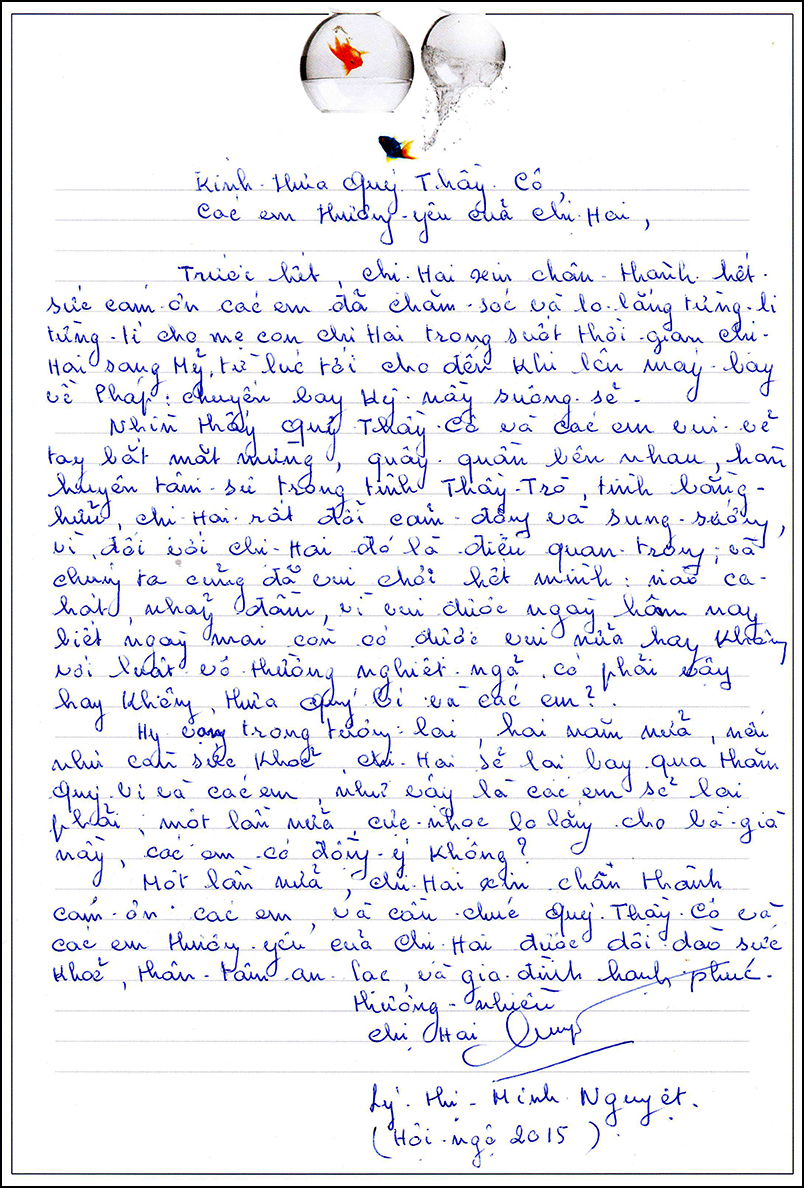 Kính thưa Quý Thầy Cô,
Các em thương yêu của Chị Hai,
Trước hết, chị Hai xin chân thành hết
sức cám ơn các em đã chăm sóc và lo lắng từng li
từng tí cho mẹ con chị Hai trong suốt thời gian chị
Hai sang Mỹ, từ lúc tới cho đến khi lên máy bay
về Pháp: chuyến bay kỳ này suông sẻ.
Nhìn thấy Quý Thầy Cô và các em vui vẻ
tay bắt mặt mừng, quây quần bên nhau, hàn
huyên tâm sự trong tình Thầy-Trò, tình bằng-
hữu, chị Hai rất đổi cảm động và sung sướng,
vì, đối với chị Hai đó là điều quan trọng, và
chúng ta cũng đã vui chơi hết mình: nào ca-
hát, nhảy đầm, vì vui được ngày hôm nay
biết ngày mai còn có được vui nữa hay không
với luật vô thường nghiệt ngã, có phải vậy
hay không, thưa Quý Vị và các em?
Hy vọng trong tương lai, hai năm nữa, nếu
như còn sức khoẻ, chị Hai sẽ lại bay qua thăm
Quý Vị và các em, như vậy là các em sẽ lại
phải, một lần nữa, cực nhọc lo lắng cho bà già
này, các em có đồng ý không?
Một lần nữa, chị Hai xin chân thành
cám ơn các em, và cầu chúc Quý Thầy Cô và
các em thương yêu của Chị Hai được dồi dào sức
khoẻ, thân tâm an lạc, và gia đình hạnh phúc.
Thương nhiều
Chị Hai
Lý Thị Minh Nguyệt.
(Hội ngộ 2015).